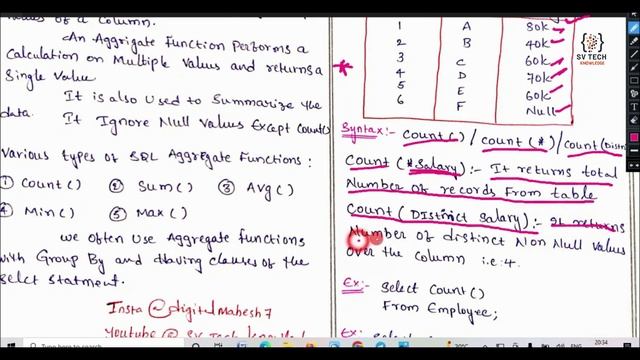 values of a column.
An Aggrigate Function Performs a
Calculation on Multiple Values and returns a
Single Value
It is also Used to Summarize the
data.
It Ignore Null Values Except Count()
Various types of SQL Aggregate Functions:
① Count() ② Sum() ③ Avg()
④ Min() ⑤ Max()
We often Use Aggregate Functions
with Group By and Having clauses of the
Selct Statment.
Insta @digitalmahesh7
Youtube @ SV Tech
1 A 80k
2 B 40k
3 C 60k
4 D 70k
5 E 60k
6 F Null
Syntax:- Count() / Count(*) / Count(Distin
Count(*Salary):- It returns total
Number of records From table
Count(Distinct Salary):- It returns
Number of distinct Non Null Values
over the column i.e:4.
Ex:- Select Count()
From Employee;
Ex:- Select
SV TECH
KNOWLEDGE
Type here to search
ENG
20:34